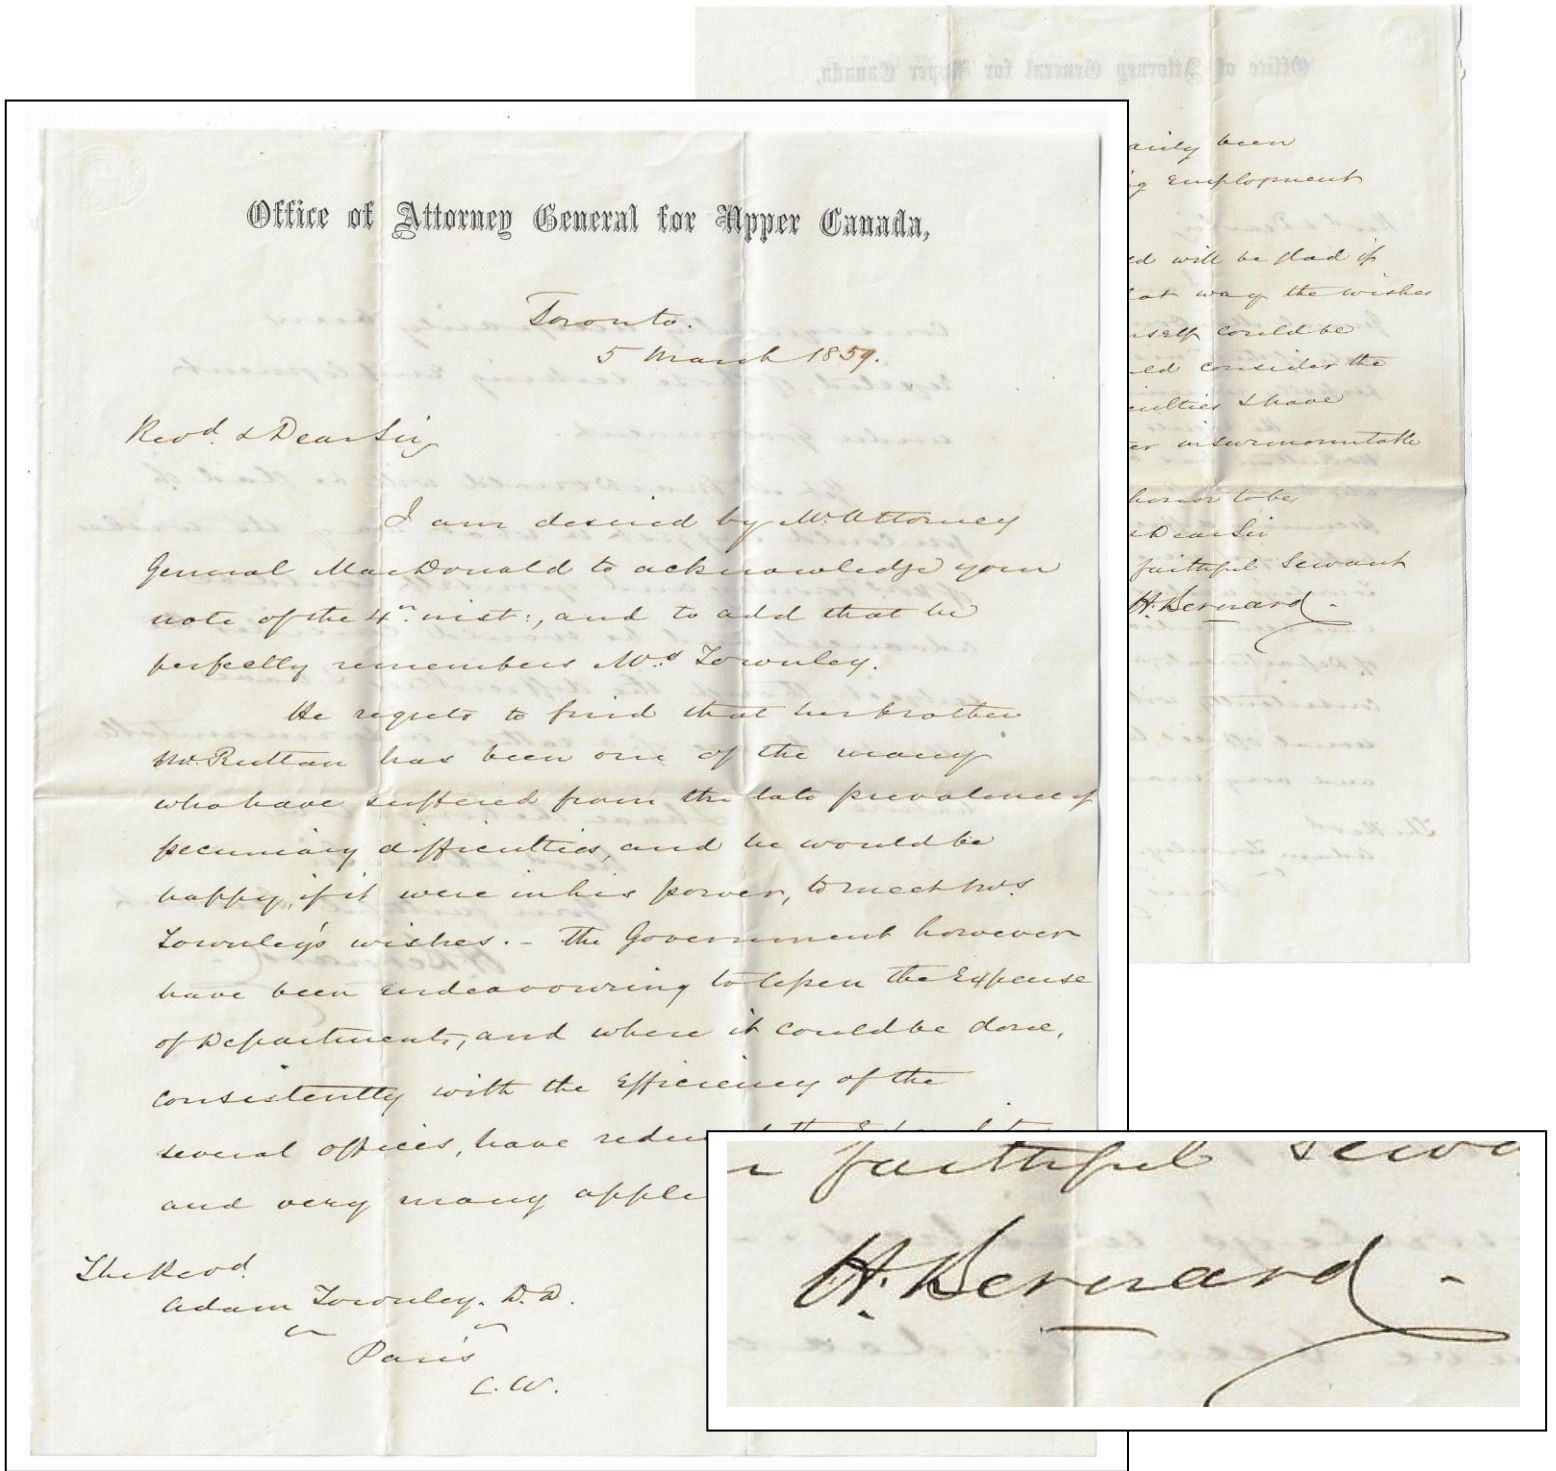 Office of Attorney General for Upper Canada,
Toronto.
5 March 1859.
Revd. & Dear Sir
I am desired by Mr. Attorney
General MacDonald to acknowledge your
note of the 4th inst:, and to add that he
perfectly remembers Mrs Townley.
He regrets to find that her brother
Mr. Ruttan has been one of the many
who have suffered from the late prevalence of
pecuniary difficulties, and he would be
happy, if it were in his power, to meet Mrs
Townley's wishes. - The Government however
have been endeavouring to lessen the Expense
of Departments, and where it could be done,
consistently with the Efficiency of the
several offices, have
and very many
The Revd.
Adam Townley. D.D.
Paris
C.W.
Office of Attorney General for Upper Canada,
been
Employment
will be glad if
way the wishes
could be
consider the
I have
insurmountable
honor to be
& Dear Sir
faithful Servant
H. Bernard -
faithful
H. Bernard -